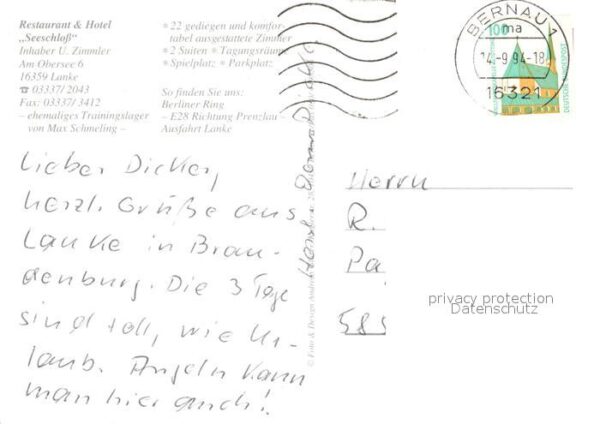 Restaurant & Hotel
„Seeschloß"
Inhaber U. Zimmler
Am Obersee 6
16359 Lanke
☎ 03337/ 2043
Fax: 03337/ 3412
– ehemaliges Trainingslager
von Max Schmeling –
* 22 gediegen und komfor-
tabel ausgestattete Zimmer
* 2 Suiten * Tagungsräume
* Spielplatz * Parkplatz
So finden Sie uns:
Berliner Ring
– E28 Richtung Prenzlau –
Ausfahrt Lanke
Lieber Dicker,
herzl. Grüße aus
Lanke in Bran-
denburg. Die 3 Tage
sind toll, wie Ur-
laub. Angeln kann
man hier auch!
© Foto & Design
BERNAU 1
ma
14.-9.94-18
16321
100
DEUTSCHE BUNDESPOST
Herrn
R.
Pa
585
privacy protection
Datenschutz